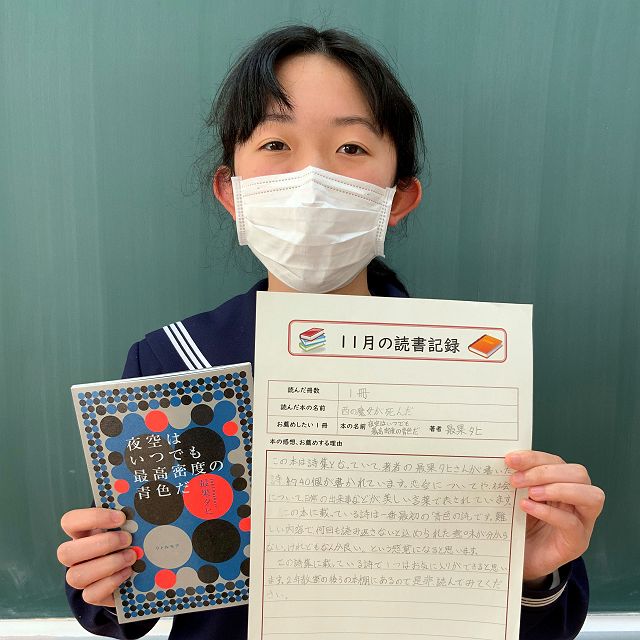 11月の読書記録
読んだ冊数 1冊
読んだ本の名前 西の魔女が死んだ
お薦めしたい1冊 本の名前 夜空はいつでも最高密度の青色だ 著者 最果タヒ
本の感想、お薦めする理由
この本は詩集となっていて著者の最果タヒさんが書いた
詩約40個が書かれています。恋合についてや、社会
について日常の出来事などが美しい言葉で表されています。
この本に載っている詩は一番最初の青色の詩です。難
しい内容で何回も読み返さないと込められた意味が分から
ない、けれどもなんか良い。という感覚になると思います。
この詩集に載っている詩で1つはお気に入りができると思い
ます。2年教室の後ろの本棚にあるので是非読んでみてくだ
さい。
夜空は
いつでも
最高密度の
青色だ
最果タヒ
リトルモア